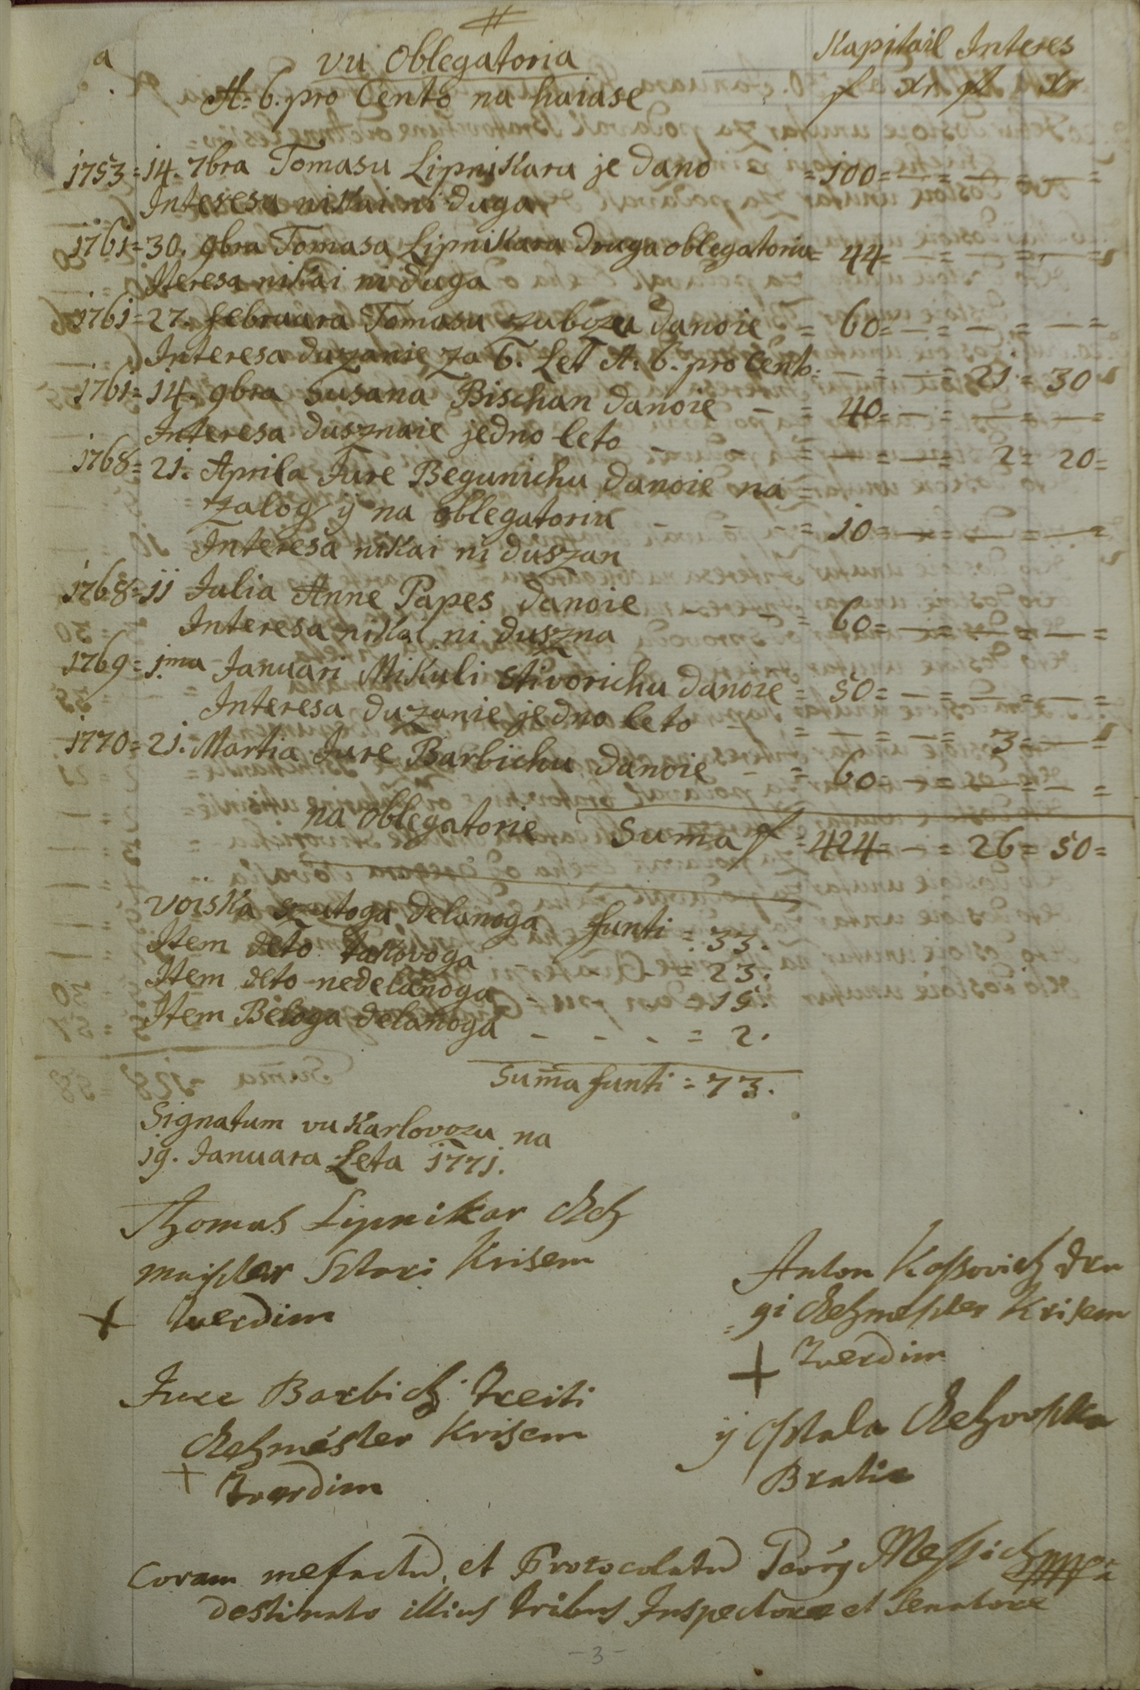 vu Oblegatoria
Kapitail Interes
A: 6. pro Cento na haiase
fl xr fl xr
1753=14. 7bra Tomasu Lipnikara je dano = 100= — = — = — =
Interesa nikai ni duga
1761=30. 9bra Tomasa Lipnikara druga oblegatoria= 44= — = — = — =
Iteresa nikai ni duga
1761=27. februara Tomasu danoie = 60= — = — = — =
Interesa duzanie za 6. Let A: 6. pro Cento: — = — = 21= 30
1761=14. 9bra Susana Bischan danoie — = 40= — = — = —
Interesa dusznaie jedno leto — = — = — = 2= 20=
1768=21. Aprila Jure Begunichu danoie na
zalog ÿ na oblegatoriu — = 10= — = — = — =
Interesa nikai ni duszan
1768=11 Julia Anne Papes danoie — = 60= — = — = — =
Interesa nikai ni duszna
1769=1.ma Januari Mikuli Stivorichu danoie = 50= — = — = — =
Interesa duzanie jedno leto — = — = — = 3= — =
1770=21. Martia Jure Barbichu danoie — = 60= — = — = — =
na oblegatorie Suma fl =424= — = 26= 50=
voiska delanoga funti = 33.
Item deto takovoga = 23.
Item deto nedelanoga = 15.
Item Beloga delanoga - - - = 2.
Suma funti = 73.
Signatum vu Karlovozu na
19. Januara Leta 1771.
Thomas Lipnikar Czeh
maister Stari Krisem
+ twerdim
Anton Kossovich dru
=gi Czehmester Krisem
+ twerdim
Jure Barbich treiti
Czehmester Krisem
+ twerdim
ÿ Ostala Czehovska
Bratia
Coram me factu, et Protocolatu Georg Messich mppa
destinato illius tribus Inspectore et Senatore
- 3 -